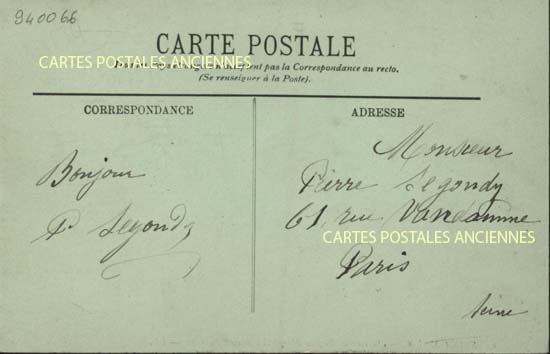 940066
CARTE POSTALE
CARTES POSTALES ANCIENNES
pas la Correspondance au recto.
(Se renseigner à la Poste).
CORRESPONDANCE
Bonjour
P Segondy
ADRESSE
Monsieur
Pierre Segondy
61 rue Vandamme
CARTES POSTALES ANCIENNES
Paris
Seine